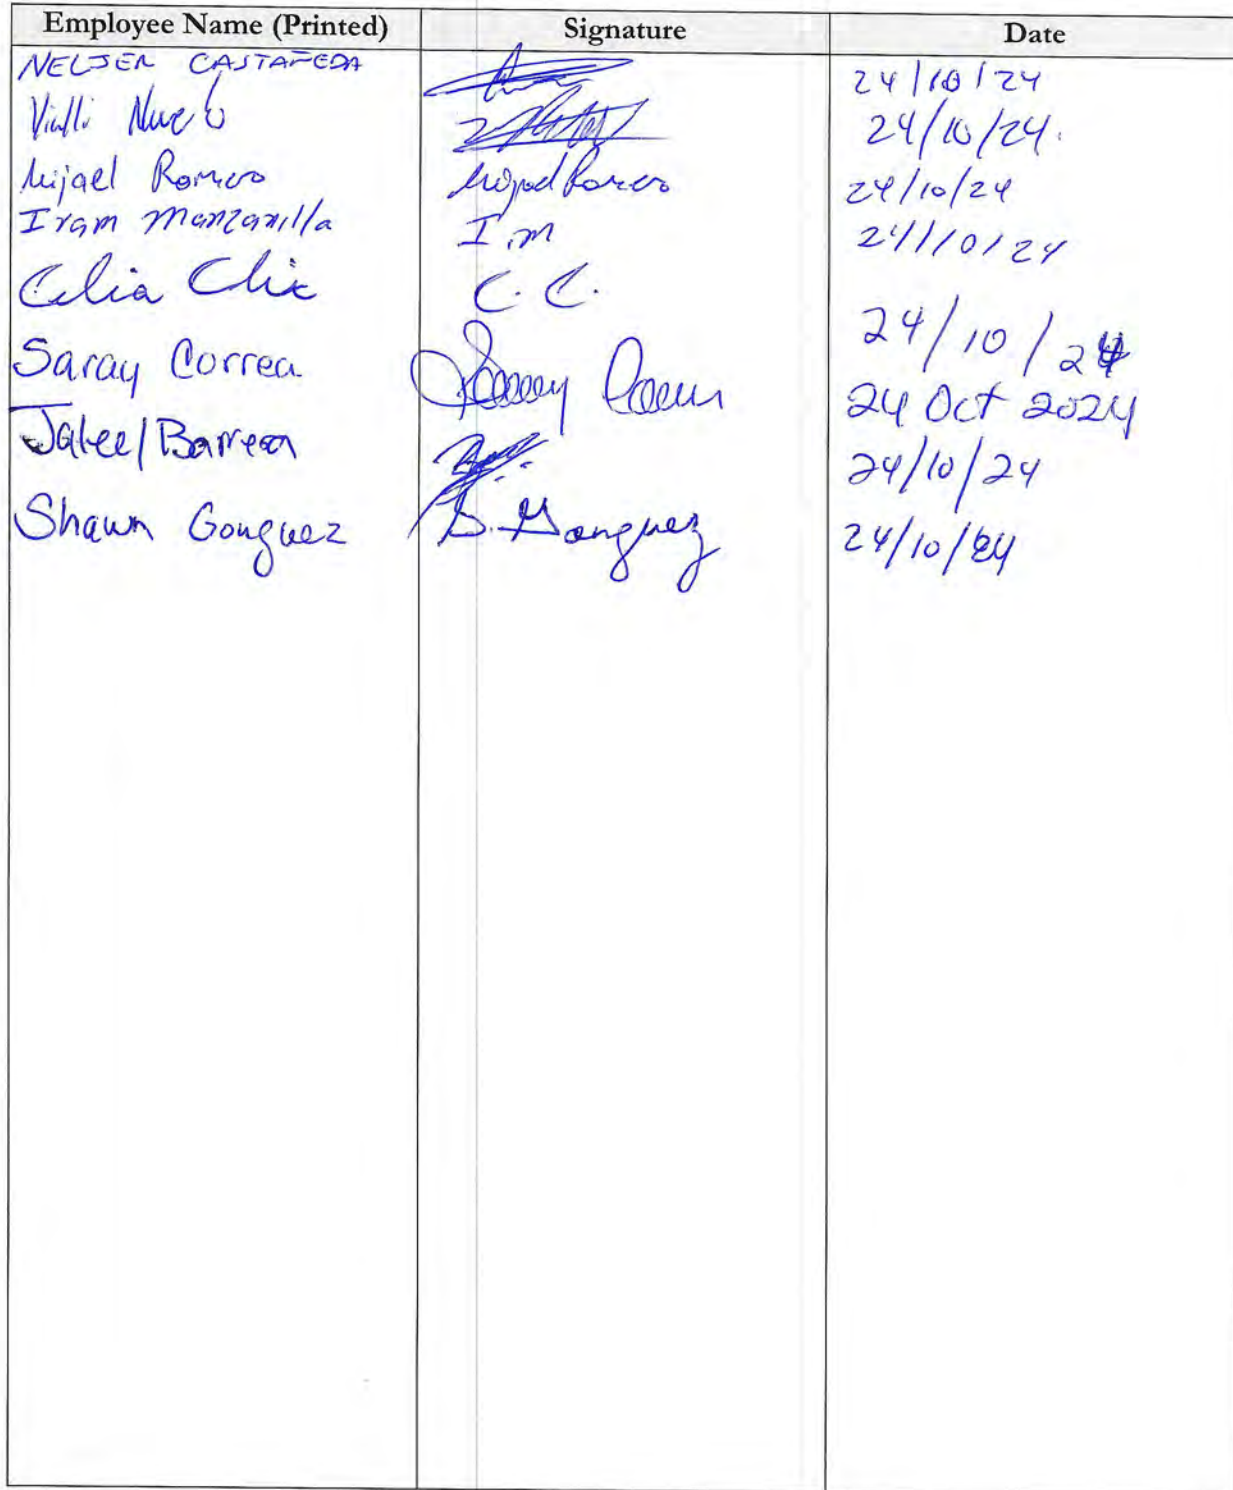 Employee Name (Printed) Signature Date
NELJER CASTAÑEDA 24/10/24
Vialli 24/10/24.
Mijael Romero Mijael Romero 24/10/24
Iram Manzanilla I.m 24/10/24
Celia Chic C.C.
24/10/24
Saray Correa Saray Correa 24 Oct 2024
Jaleel Barrera 24/10/24
Shawn Gonguez S. Gonguez 24/10/24